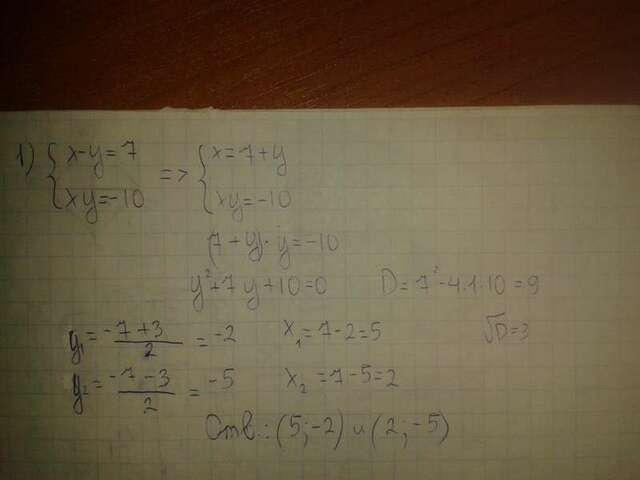 1) { x-y=7 => { x=7+y
xy=-10 xy=-10
(7+y)·y=-10
y²+7y+10=0 D=7²-4·1·10=9
y₁=-7+3/2=-2 x₁=7-2=5 √D=3
y₂=-7-3/2=-5 x₂=7-5=2
Отв.: (5;-2) и (2;-5)